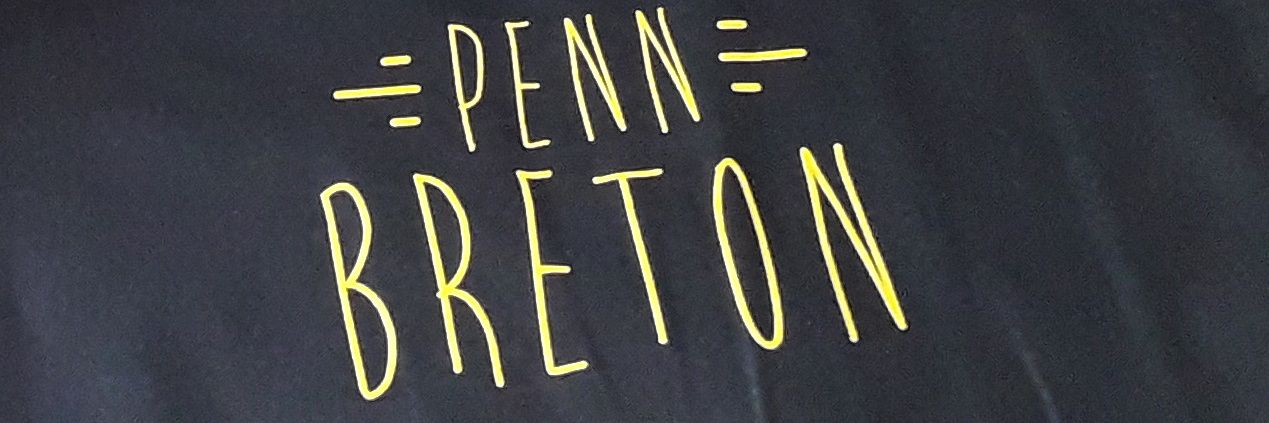 PENN
BRETON